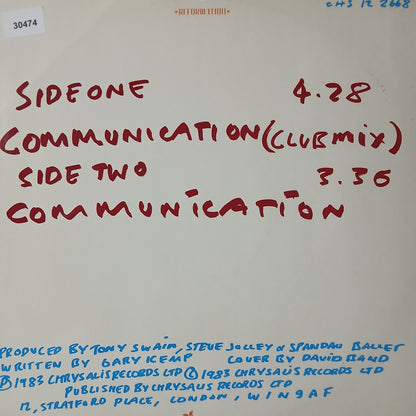 30474
•REFORMATION•
CHS 12 2668
SIDE ONE 4.28
COMMUNICATION (CLUB MIX)
SIDE TWO 3.36
COMMUNICATION
PRODUCED BY TONY SWAIN, STEVE JOLLEY & SPANDAU BALLET
WRITTEN BY GARY KEMP COVER BY DAVID BAND
Ⓟ 1983 CHRYSALIS RECORDS LTD © 1983 CHRYSALIS RECORDS LTD
PUBLISHED BY CHRYSALIS RECORDS LTD
12, STRATFORD PLACE, LONDON, W1N 9AF